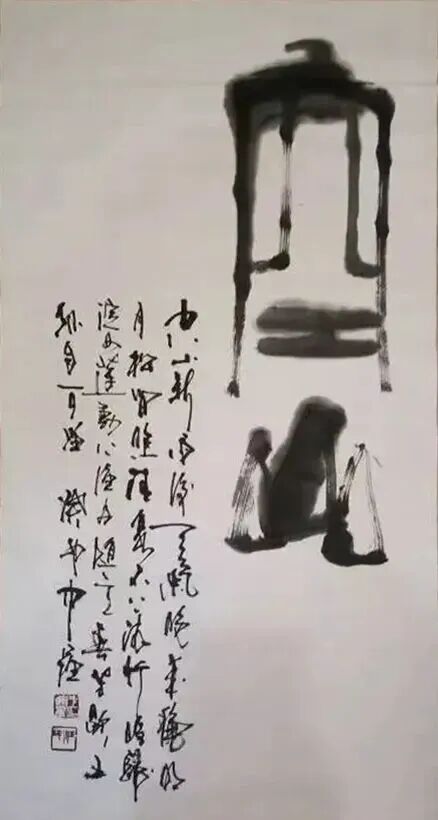 空山
空山新雨後天氣晚來秋明
月松間照清泉石上流竹喧歸
浣女蓮動下漁舟隨意春芳歇王
孫自可留